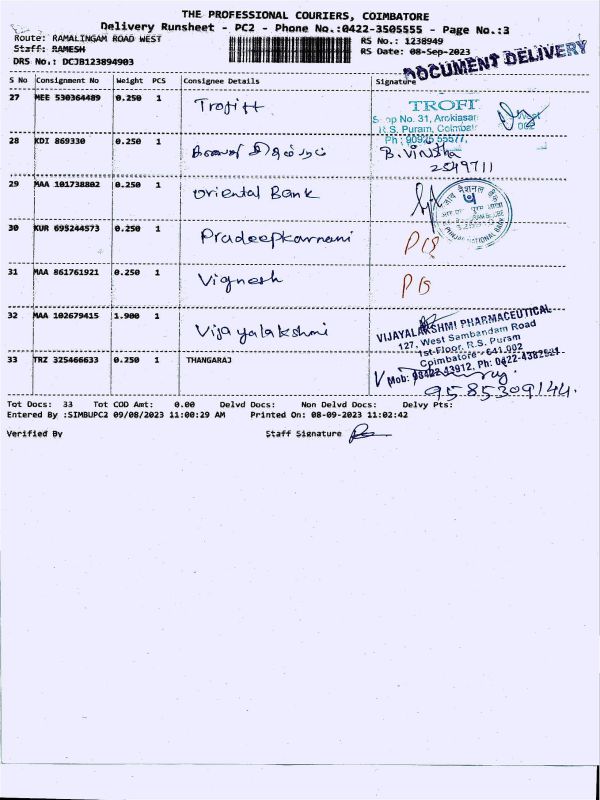 THE PROFESSIONAL COURIERS, COIMBATORE
Delivery Runsheet - PC2 - Phone No.:0422-3505555 - Page No.:3
Route: RAMALINGAM ROAD WEST RS No.: 1238949
Staff: RAMESH RS Date: 08-Sep-2023
DRS No.: DCJB123894903 DOCUMENT DELIVERY
S No Consignment No Weight PCS Consignee Details Signature
27 MEE 530364489 0.250 1 Trofitt TROFI
Shop No. 31, Arokiasar West
R.S. Puram, Coimbat 002
Ph : 90925 55577,
28 KDI 869330 0.250 1 B. Vinitha
2549711
29 MAA 101738802 0.250 1 Oriental Bank
PUNJAB NATIONAL BANK
30 KUR 695244573 0.250 1 Pradeepkarnani
31 MAA 861761921 0.250 1 Vignesh
32 MAA 102679415 1.900 1 Vijayalakshmi VIJAYALAKSHMI PHARMACEUTICAL
127, West Sambandam Road
1st Floor, R.S. Puram
Coimbatore - 641 002
33 TRZ 325466633 0.250 1 THANGARAJ Mob: 98422 43912, Ph: 0422-4382521
9585309144.
Tot Docs: 33 Tot COD Amt: 0.00 Delvd Docs: Non Delvd Docs: Delvy Pts:
Entered By :SIMBUPC2 09/08/2023 11:00:29 AM Printed On: 08-09-2023 11:02:42
Verified By Staff Signature